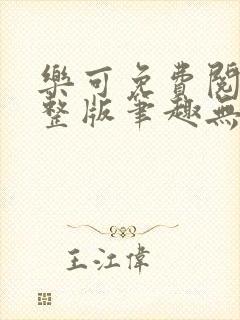 樂可免費閱
整版筆趣無
王江偉